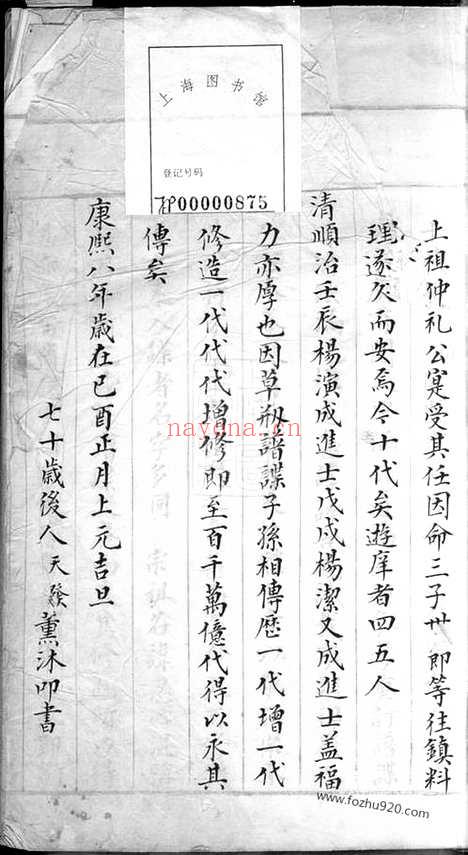 上海图书馆
登记号码
JP00000875
上祖仲礼公寔受其任因命三子卅即等往鎮料
理遂久而安焉今十代矣遊庠者四五人
清順治壬辰楊演成進士戊戌楊潔又成進士盖福
力亦厚也因草剏譜諜子孫相傳歷一代增一代
修造一代代代增修即至百千萬億代得以永其
傳矣
康熙八年歲在己酉正月上元吉旦
七十歲後人天發薰沐叩書
nayona.cn
www.fozhu920.com